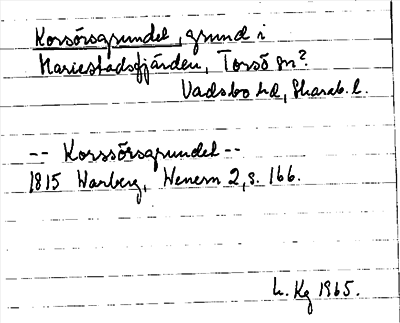 Korsörsgrundet, grund i
Mariestadsfjärden, Torsö sn?
Vadsbo hd, Skarab. l.
-- Korssörsgrundet --
1815 Warberg, Wenern 2, s. 166.
L. Kg 1965.